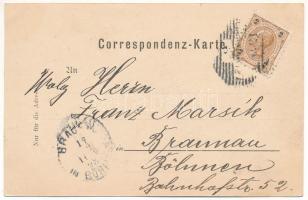 Correspondenz-Karte.
An
Herrn
Franz Marsik
Braunau
Böhmen
Bahnhofstr. 52.
Nur für die Adresse
BRAUNAU